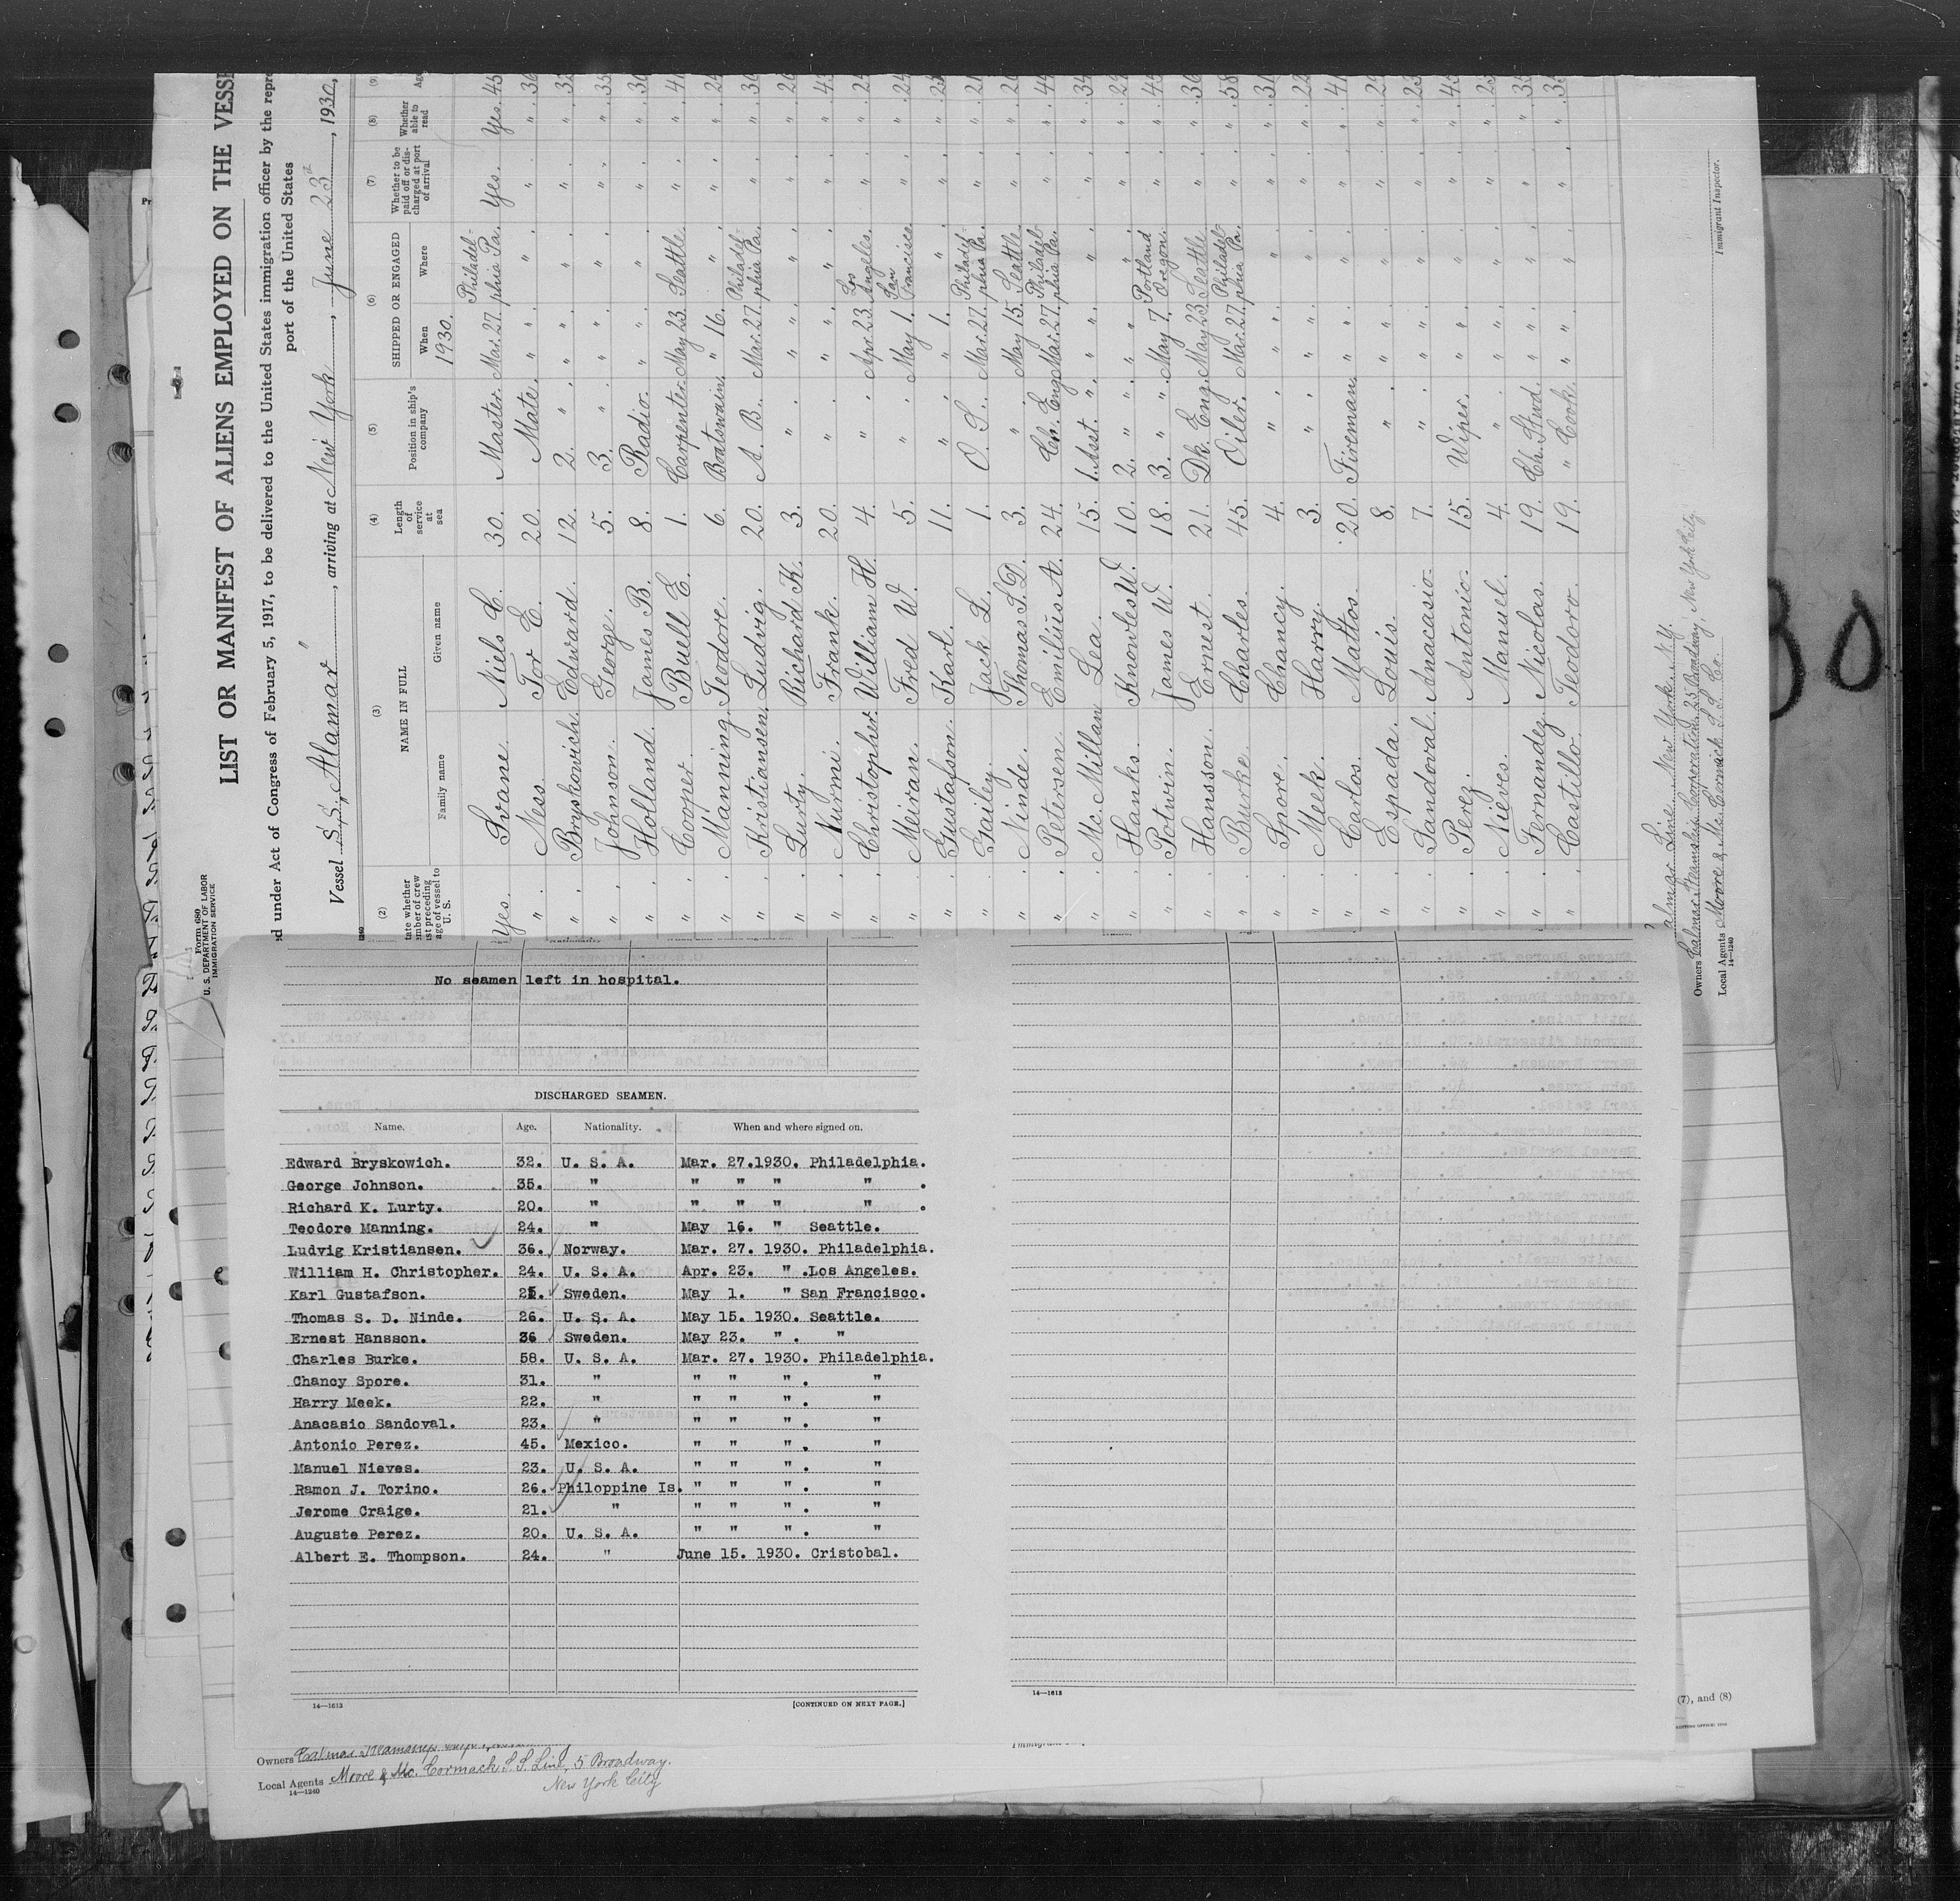 LIST OR MANIFEST OF ALIENS EMPLOYED ON THE VESSE
Form 680
U. S. DEPARTMENT OF LABOR
IMMIGRATION SERVICE
ed under Act of Congress of February 5, 1917, to be delivered to the United States immigration officer by the repre
port of the United States
Vessel S.S. "Alamar", arriving at New York, June 23th, 1930,
(2) (3) (4) (5) (6) (7) (8) (9)
NAME IN FULL
Family name Given name
Length of service at sea
Position in ship's company
SHIPPED OR ENGAGED
When Where
Whether to be paid off or discharged at port of arrival
Whether able to read
1930.
Yes. Svane. Niels C. 30. Master. Mar. 27. Philadelphia Pa. Yes. Yes. 45
" Ness. Tor E. 20. Mate. " " " " 36
" Bryskowich. Edward. 12. 2. " " " " " 32
" Johnson. George. 5. 3. " " " " " 35
" Holland. James B. 8. Radio. " " " " 30
" Cooper. Buell E. 1. Carpenter. May 23. Seattle. " " 41
" Manning. Teodore. 6. Boatswain. " 16. " " " 24
" Kristiansen. Ludvig. 20. A. B. Mar. 27. Philadelphia Pa. " " 36
" Lurty. Richard K. 3. " " " " " 20
" Nurmi. Frank. 20. " " " " " 43
" Christopher. William H. 4. " Apr. 23. Los Angeles. " " 24
" Meiran. Fred W. 5. " May 1. San Francisco. " " 24
" Gustafson. Karl. 11. " " 1. " " " 25
" Gailey. Jack L. 1. O. S. Mar. 27. Philadelphia Pa. " " 21
" Ninde. Thomas S. D. 3. " May 15. Seattle. " " 26
" Petersen. Emilius A. 24. Ch. Eng. Mar. 27. Philadelphia Pa. " " 44
" Mc. Millan Lea. 15. 1. Asst. " " " " " 34
" Hanks. Knowles W. 10. 2. " " " " " " 29
" Potwin. James W. 18. 3. " " May 7. Portland Oregon. " " 45
" Hansson. Ernest. 21. Dk. Eng. May 23. Seattle " " 36
" Burke. Charles. 45. Oiler. Mar. 27. Philadelphia Pa. " " 58
" Spore. Chancy. 4. " " " " " 31
" Meek. Harry. 3. " " " " " 22
" Carlos. Mattos. 20. Fireman. " " " " 41
" Espada. Louis. 8. " " " " " 29
" Sandoval. Anacasio. 7. " " " " " 23
" Perez. Antonio. 15. Wiper. " " " " 45
" Nieves. Manuel. 4. " " " " " 23
" Fernandez. Nicolas. 19. Ch. Stwd. " " " " 35
" Castillo. Teodoro. 19. " Cook. " " " " 34
almar Line. New York. N.Y.
Owners Calmar Steamship Corporation. 25 Broadway, New York City.
Local Agents Moore & Mc. Cormack S. S. Co.
14—1240
Immigrant Inspector.
No seamen left in hospital.
DISCHARGED SEAMEN.
Name. Age. Nationality. When and where signed on.
Edward Bryskowich. 32. U. S. A. Mar. 27.1930. Philadelphia.
George Johnson. 35. " " " " " .
Richard K. Lurty. 20. " " " " " .
Teodore Manning. 24. " May 16. " Seattle.
Ludvig Kristiansen. 36. Norway. Mar. 27. 1930. Philadelphia.
William H. Christopher. 24. U. S. A. Apr. 23. " .Los Angeles.
Karl Gustafson. 25. Sweden. May 1. " San Francisco.
Thomas S. D. Ninde. 26. U. S. A. May 15. 1930. Seattle.
Ernest Hansson. 36 Sweden. May 23. " . "
Charles Burke. 58. U. S. A. Mar. 27. 1930. Philadelphia.
Chancy Spore. 31. " " " " . "
Harry Meek. 22. " " " " . "
Anacasio Sandoval. 23. " " " " . "
Antonio Perez. 45. Mexico. " " " . "
Manuel Nieves. 23. U. S. A. " " " . "
Ramon J. Torino. 26. Philoppine Is. " " " . "
Jerome Craige. 21. " " " " . "
Auguste Perez. 20. U. S. A. " " " . "
Albert E. Thompson. 24. " June 15. 1930. Cristobal.
14—1613 [CONTINUED ON NEXT PAGE.]
14—1613
(7), and (8)
Owners Calmar Steamship
Local Agents Moore & Mc. Cormack S. S. Line, 5 Broadway.
New York City
14—1240